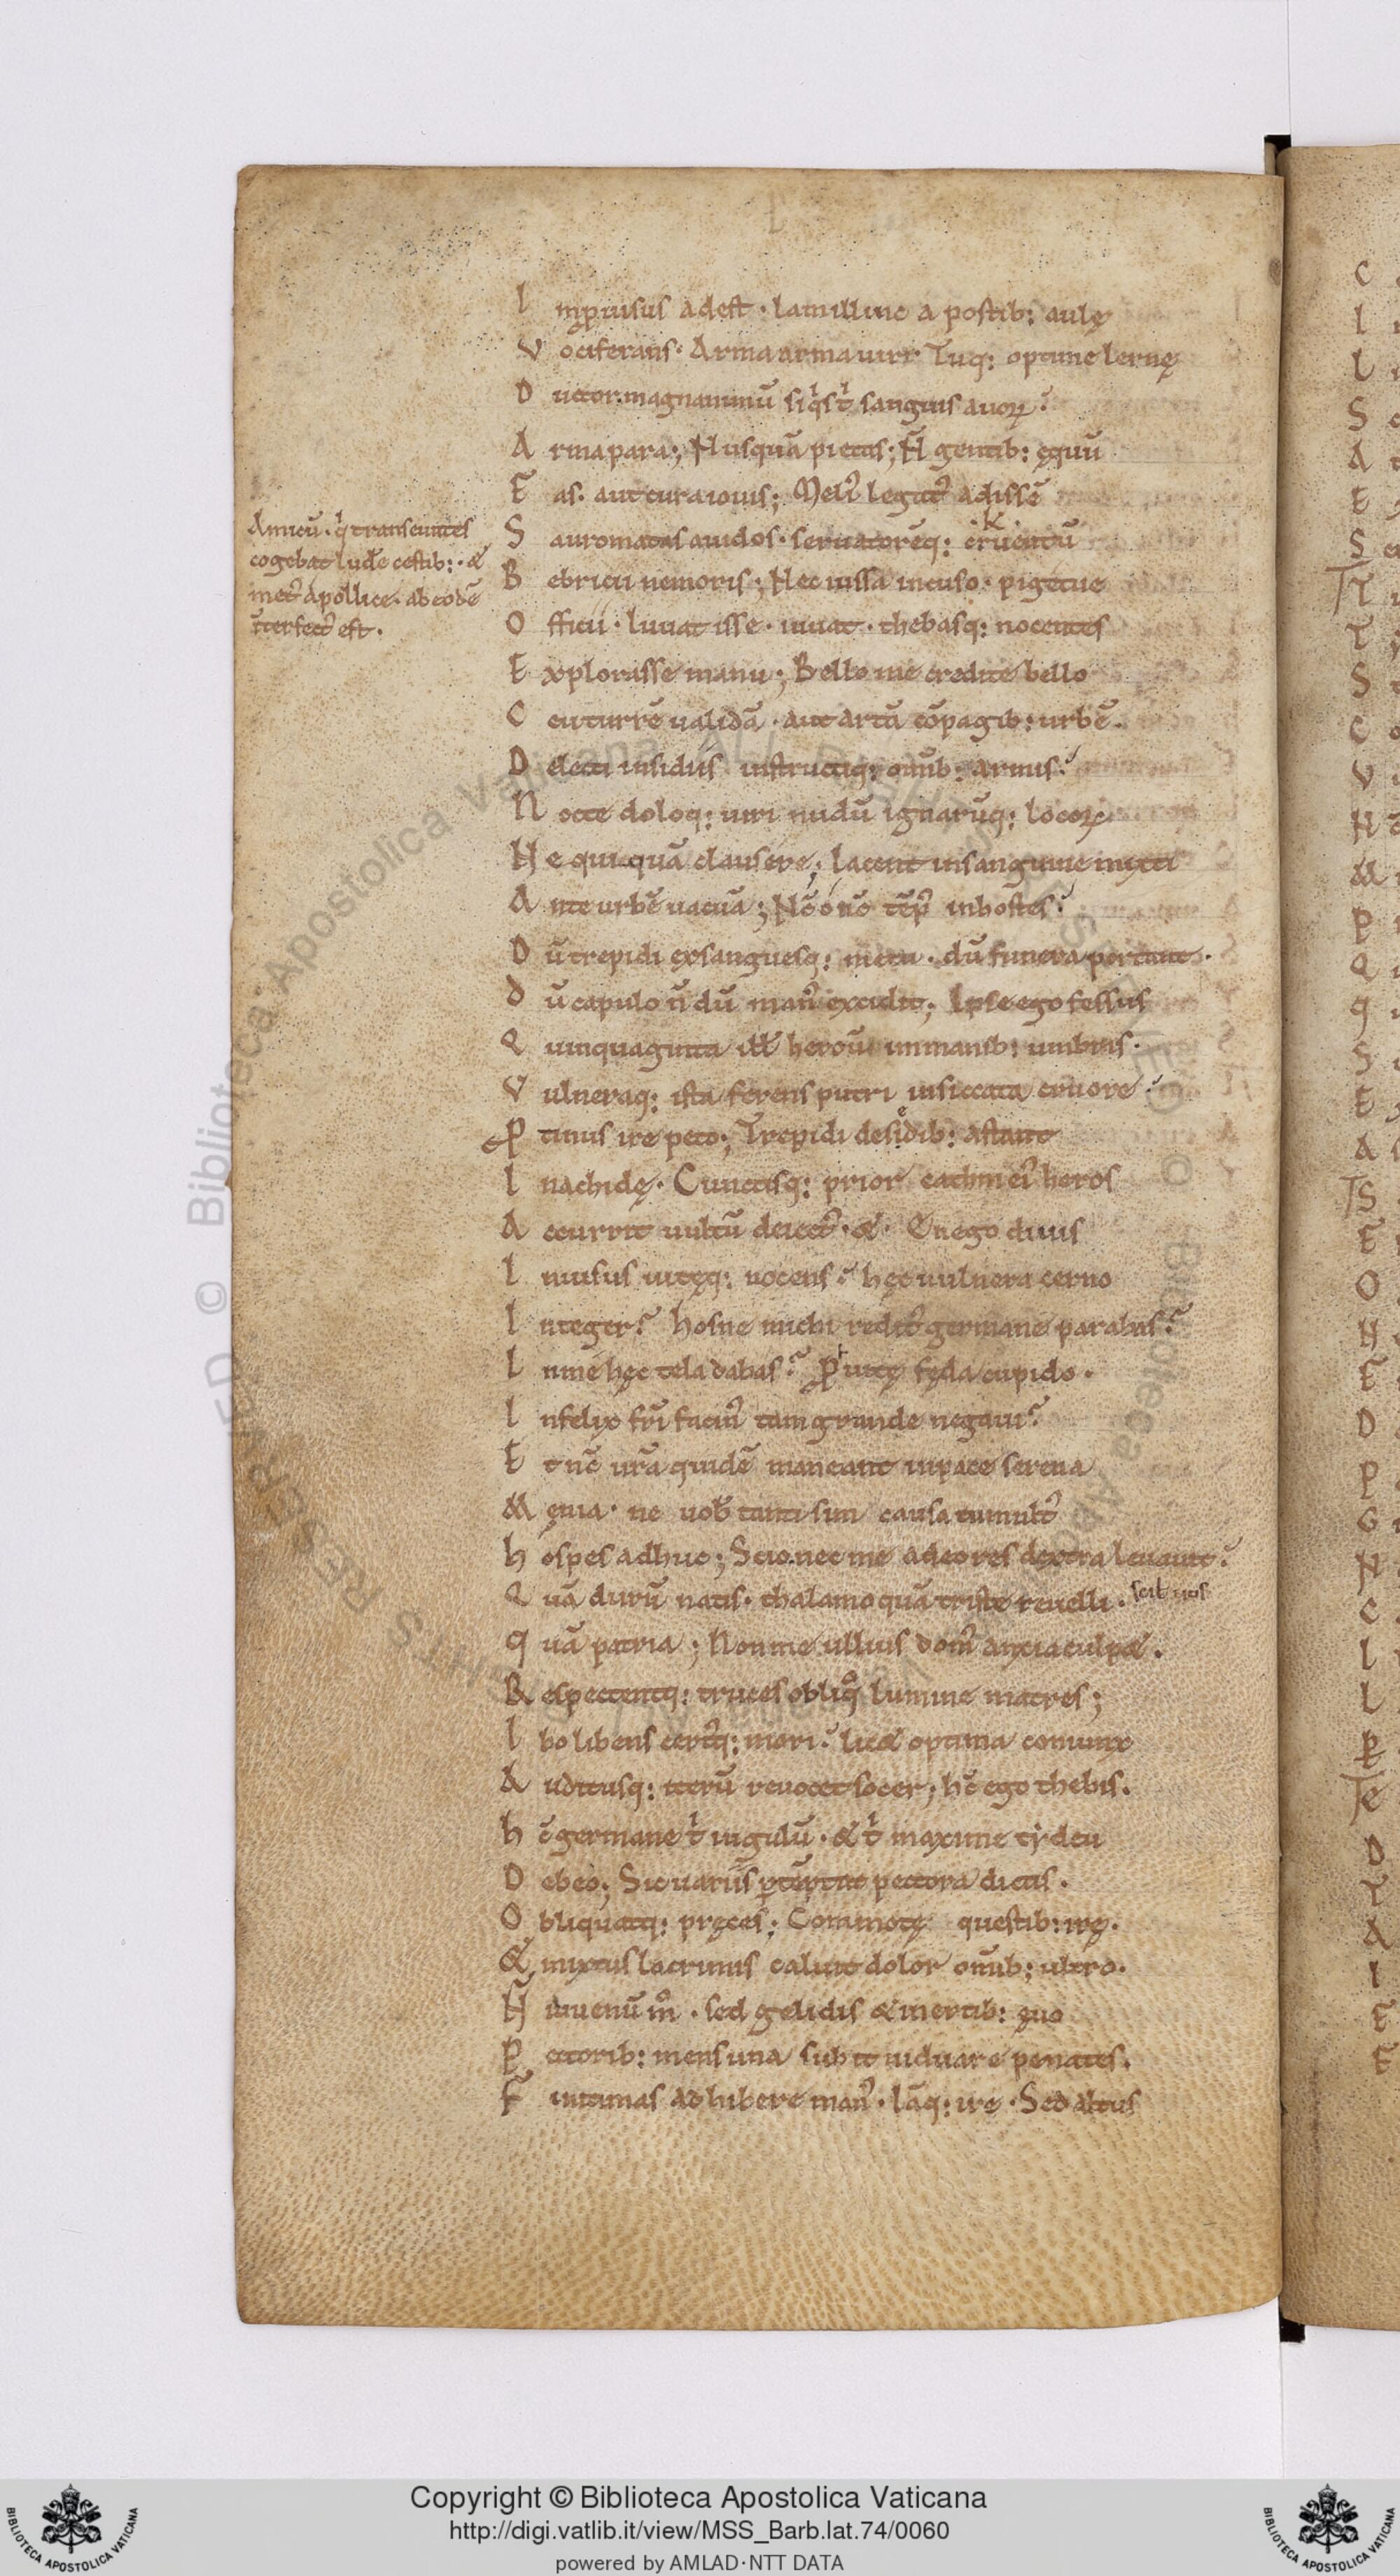 I mp̱uisus adest · Iamillinc a postib: aulę
V ociferans · Arma arma uiri Tuq: optime lernę
D uctor magnanimū siq̍s t̍ sanguis auoꝝ ·
A rma para; Nusquā pietas; N̄ gentib: ęquū
F as. aut cura iouis; Meli᾽ legat᾽ adissē
S auromatas auidos · seruatorēq: cruentū
B ebricii nemoris; Nec iussa incuso · pigetue
O fficii · Iuuat isse · iuuat · thebasq: nocentes
E xplorasse manu; Bello me credite bello
C eu turrē ualidā · aut artā cōpagib: urbē.
D electi insidiis instructiq: omīb: armis ·
N octe doloq: uiri nudū ignarūq: locoꝝ
N e quiquā clausere; Iacent insanguine mixti
A nte urbē uacuā; Nc̄ ó nc̄ tēp᾽ inhostes ·
D ū trepidi exsanguesq: metu · dū funera portant ·
D ū capulo n̄dū man᾽ excidit; Ipse ego fessus
Q uinquaginta ill̄ heroū immanib: umbris ·
V ulneraq: ista ferens putri insiccata cruore
P̱ tinus ire peto; Trepidi desidib: astant
I nachidę · Cunctisq: prior cathmei᾽ heros
A ccurrit uultū deiect᾽ · & · En ego diuis
I nuisus uitęq: nocens · hęc uulnera cerno
I nteger · hosne michi redit᾽ germane parabas ·
I nme hęc tela dabas · P̱ uitę fęda cupido ·
I nfelix fr̄i facin᾽ tam grande negaui ·
E t nc̄ ur̄a quidē maneant inpace serena
M ęnia · ne uob̄ tanti sim causa tumult᾽
h ospes adhuc; Scio nec me adeo res dextra leuauit ·
Q uā durū natis · thalamo quā triste reuelli · scił uos
Q uā patria; Non me ullius dom᾽ anxia culpæ ·
R espectentq: truces obliq̊ lumine matres;
I bo libens cert᾽q: mori · lic& optima coniunx
A uditusq: iterū reuocet socer; hc̄ ego thebis.
h c̄ germane t̍ iugulū · & t̍ maxime tydeu
D ebeo; Sic uariis p̱tēptat pectora dictis ·
O bliquatq: pręces; Commotę questib: irę.
& mixtus lacrimis caluit dolor omīb: ultro.
N̄ iuuenū m̊ · sed gelidis & inertib: ęuo
P ectorib: mens una subit uiduare penates.
F initimas adhibere man᾽ · Iāq: ire · Sed altus
Amicū · q̍ transeuntes
cogebat luđe cestib: · &
met᾽ apollice · ab eodē
īterfect᾽ est ·
Copyright © Biblioteca Apostolica Vaticana
http://digi.vatlib.it/view/MSS_Barb.lat.74/0060
powered by AMLAD·NTT DATA
BIBLIOTECA APOSTOLICA VATICANA
BIBLIOTECA APOSTOLICA VATICANA